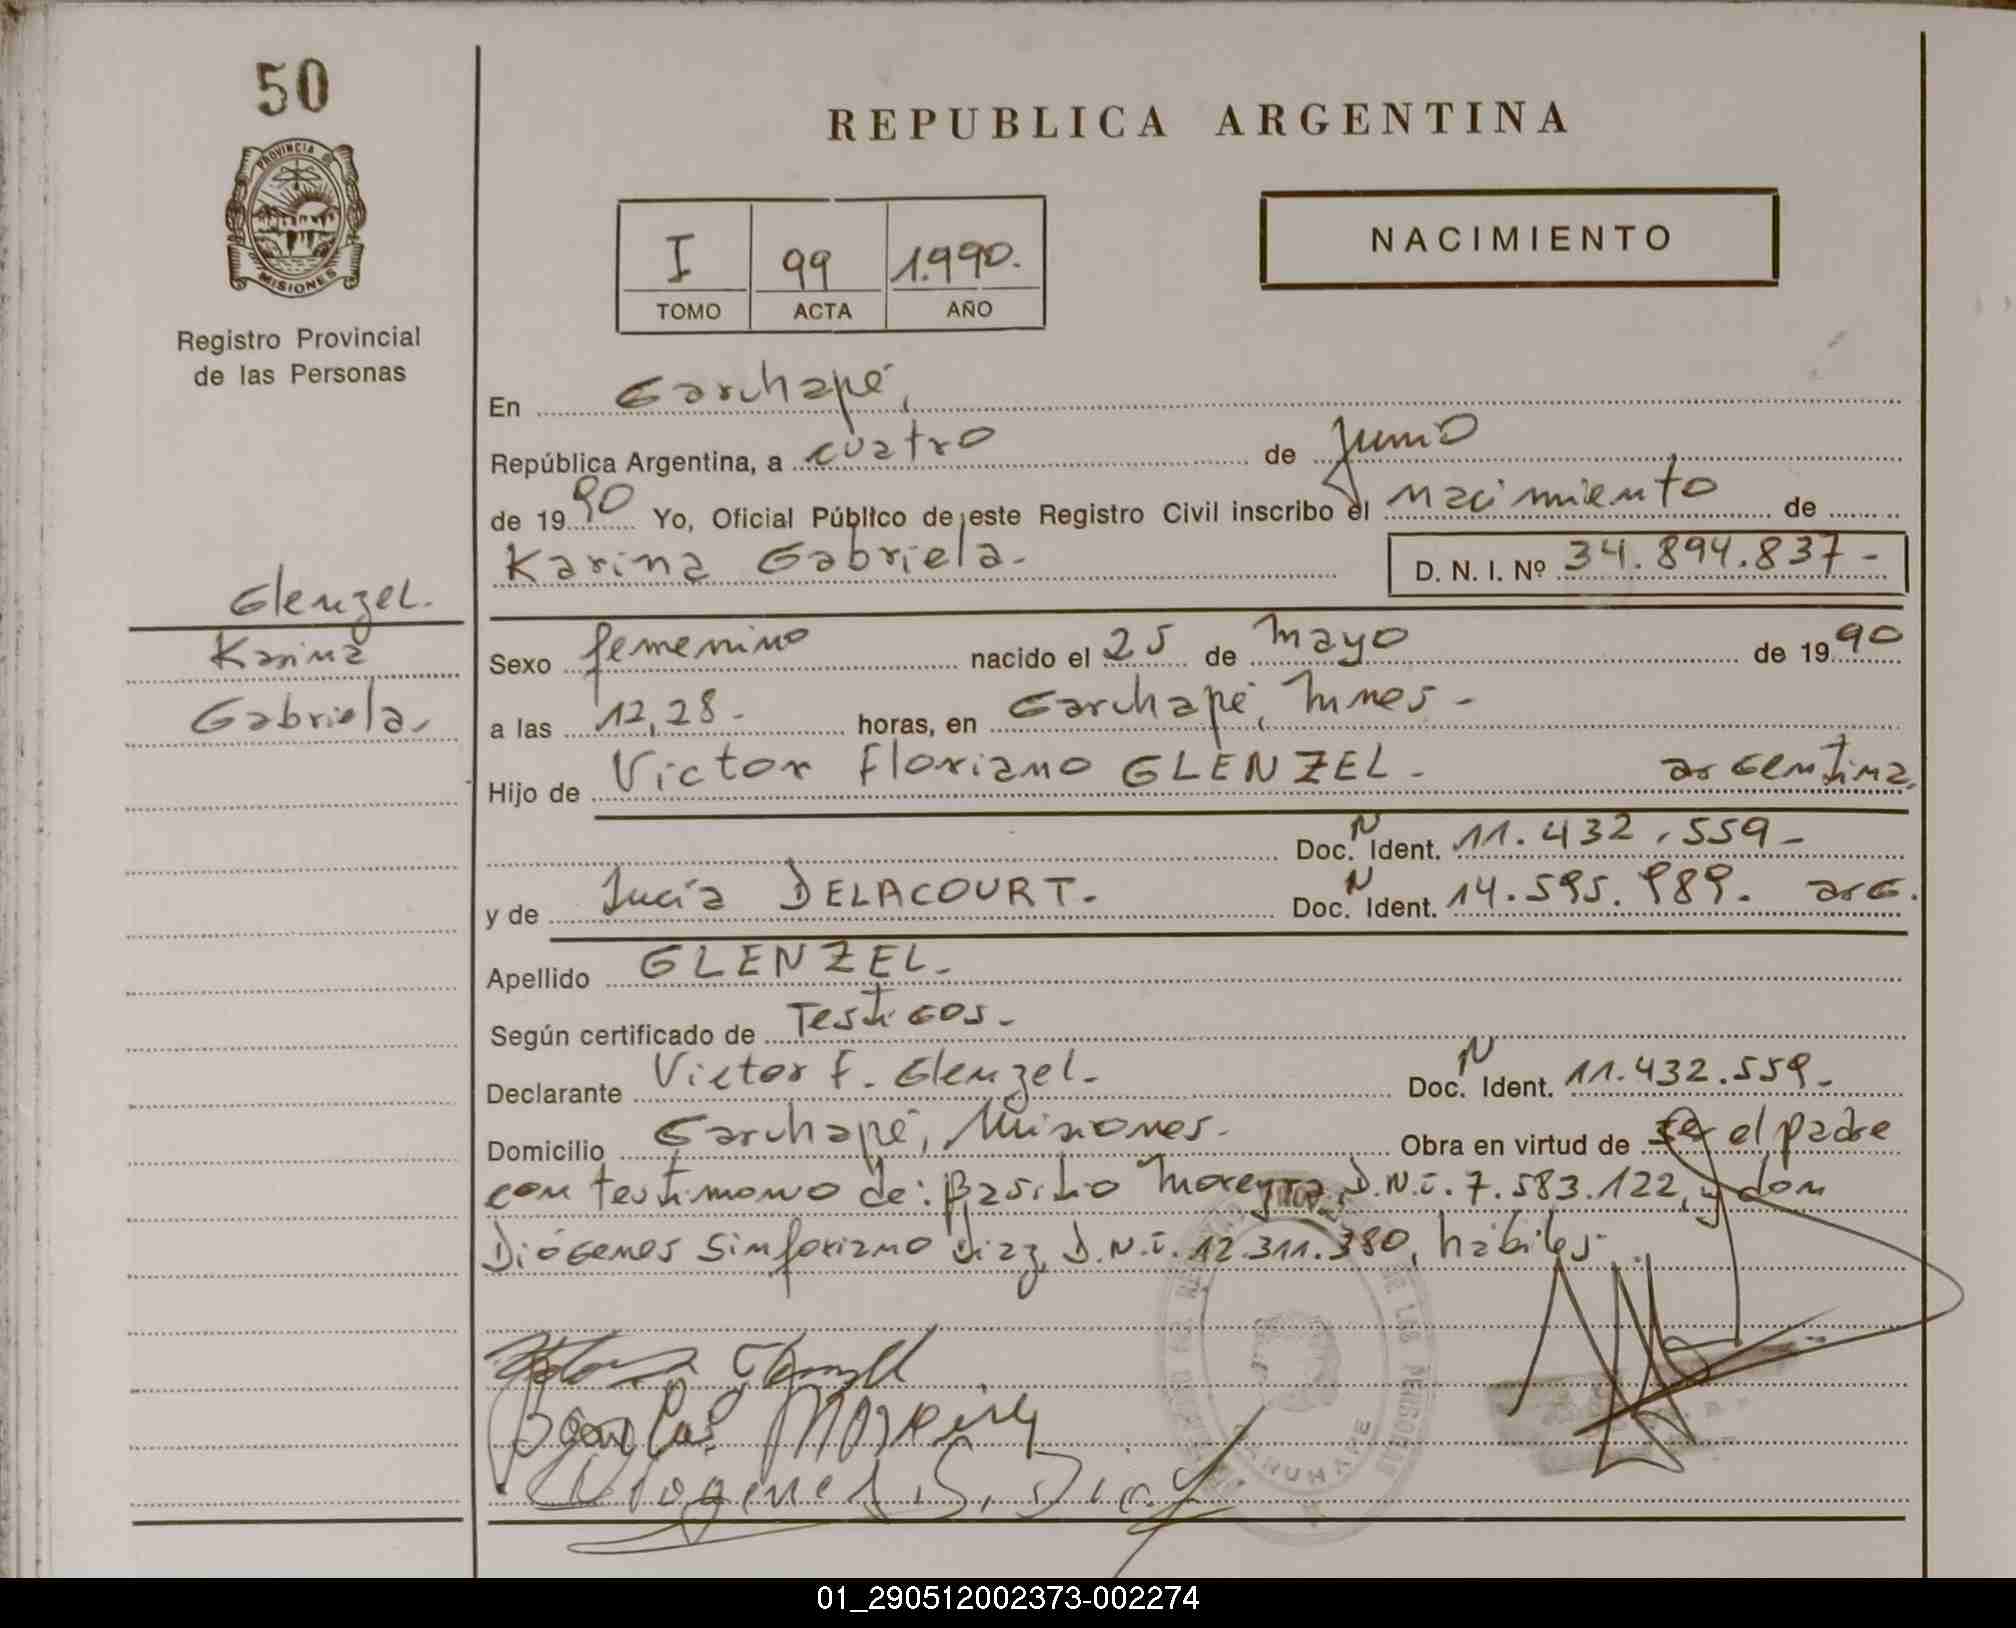 50
PROVINCIA
MISIONES
Registro Provincial
de las Personas
REPUBLICA ARGENTINA
I 99 1.990.
TOMO ACTA AÑO
NACIMIENTO
En Garuhapé,
República Argentina, a cuatro de junio
de 1990 Yo, Oficial Público de este Registro Civil inscribo el nacimiento de
Karina Gabriela.- D. N. I. Nº 34.894.837-
Glenzel.
Karina
Gabriela.
Sexo femenino nacido el 25 de mayo de 1990
a las 12,28- horas, en Garuhapé, Mnes-
Hijo de Victor Floriano GLENZEL- argentina,
Doc. N Ident. 11.432.559-
y de Lucía DELACOURT.- Doc. N Ident. 14.595.989. arG.
Apellido GLENZEL-
Según certificado de Testigos-
Declarante Victor F. Glenzel- Doc. N Ident. 11.432.559-
Domicilio Garuhapé, Misiones- Obra en virtud de ser el padre
con testimonio de: Basilio Moreyra, D.N.i. 7.583.122, y don
Diógenes Sinforiano Diaz, D.N.i. 12.311.380, hábiles-
Moreira
Diogenes S. Diaz
DE LAS PERSONAS
GARUHAPE
01_290512002373-002274